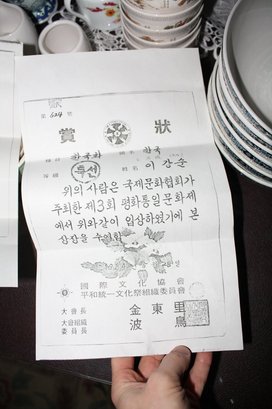 第 624 號
賞狀
種目 한국화 國名 한국
等級 특선 姓名 이강순
위의 사람은 국제문화협회가
주최한 제3회 평화통일문화제
에서 위와같이 입상하였기에 본
상장을 수여함
國際文化協會
平和統一文化祭組織委員會
大會長 金東里
大會組織
委員長 波鳥